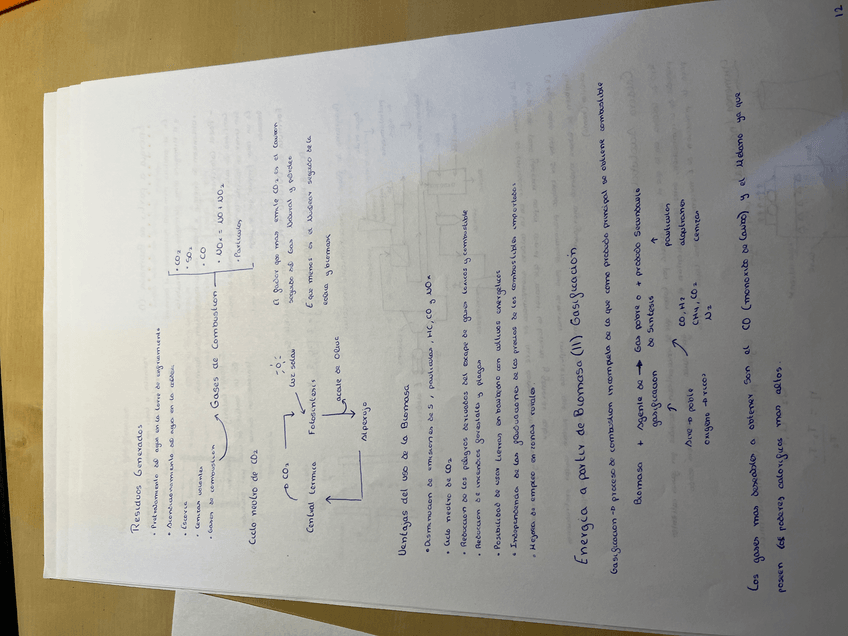 Residuos Generados
• Pretratamiento del agua en la torre de refrigeramiento
• Acondicionamiento del agua en la caldera
• Escoria
• Cenizas volantes
• Gases de combustion → Gases de Combustion
• CO2
• SO2
• CO
• NOx = NO + NO2
• Particulas
Ciclo neutro de CO2
CO2
Luz solar
Central termica
Fotosintesis
aceite de Olive
Alperujo
El factor que mas emite CO2 es el Carbon
seguido del Gas Natural y petroleo
El que menos es la Nuclear seguido de la
eolica y biomasa
Ventajas del uso de la Biomasa
• Disminucion de emisiones de S, particulas, HC, CO y NOx
• Ciclo neutro de CO2
• Reduccion de los peligros derivados del escape de gases toxicos y combustible
• Reduccion de incendios forestales y plagas
• Posibilidad de usar tierras en barbecho con cultivos energeticos
• Independencia de las fluctuaciones de los precios de los combustibles importados
• Mejora de empleo en zonas rurales
Energia a partir de Biomasa (II) Gasificacion
Gasificacion → proceso de combustion incompleta de la que como producto principal se obtiene combustible
Biomasa + agente de → Gas pobre o + producto Secundario
gasificacion de sintesis
Aire → pobre
oxigeno → rico
CO, H2
CH4, CO2
N2
particulas
alquitranes
cenizas
Los gases mas deseables a obtener son el CO (monoxido de carbono) y el Metano ya que
poseen los poderes calorificos mas altos.
12